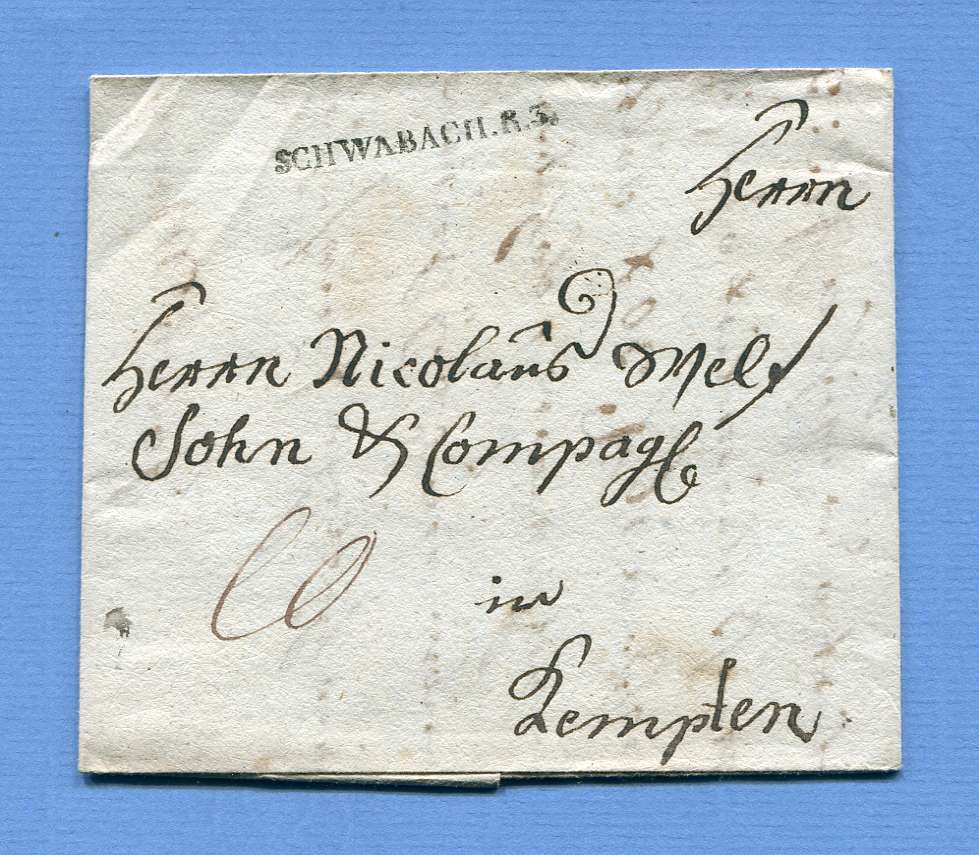 SCHWABACH.R.3.
Herrn
Herrn Nicolaus
Sohn & Compag
in
Kempten